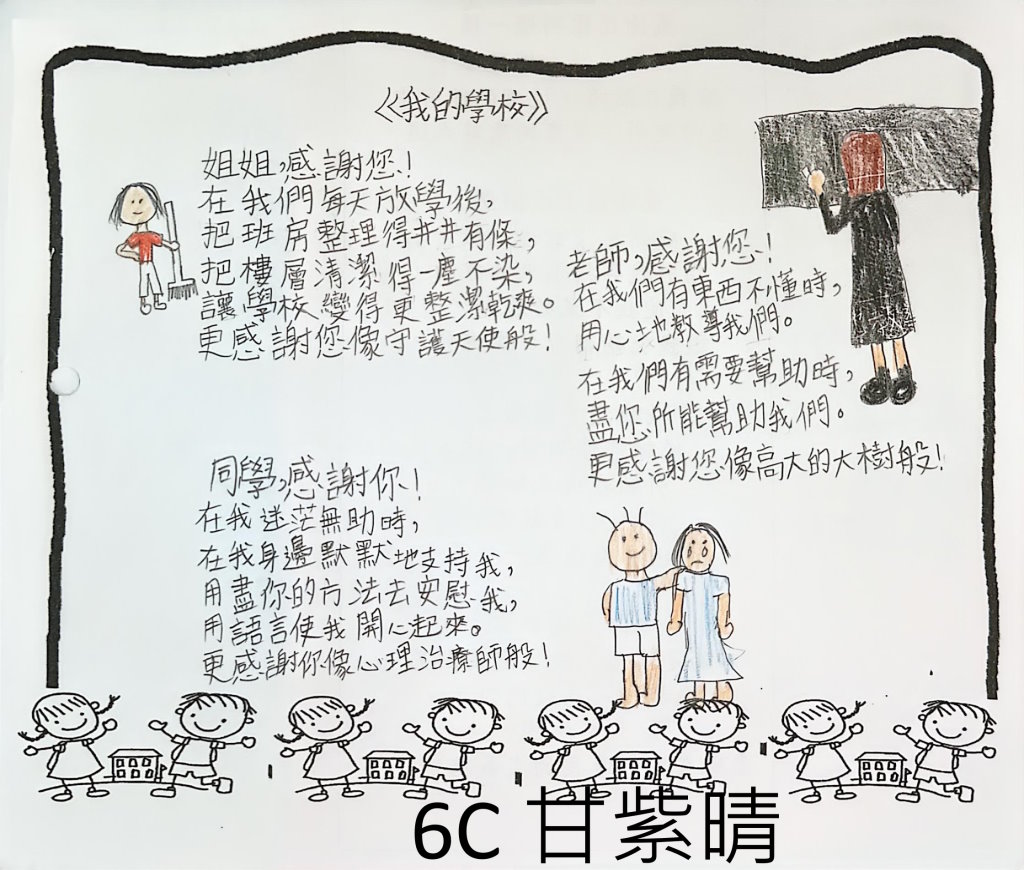 《我的學校》
姐姐，感謝您！
在我們每天放學後，
把班房整理得井井有條，
把樓層清潔得一塵不染，
讓學校變得更整潔乾爽。
更感謝您像守護天使般！
老師，感謝您！
在我們有東西不懂時，
用心地教導我們。
在我們有需要幫助時，
盡您所能幫助我們。
更感謝您像高大的大樹般！
同學，感謝你！
在我迷茫無助時，
在我身邊默默地支持我，
用盡你的方法去安慰我，
用語言使我開心起來。
更感謝你像心理治療師般！
6C 甘紫晴